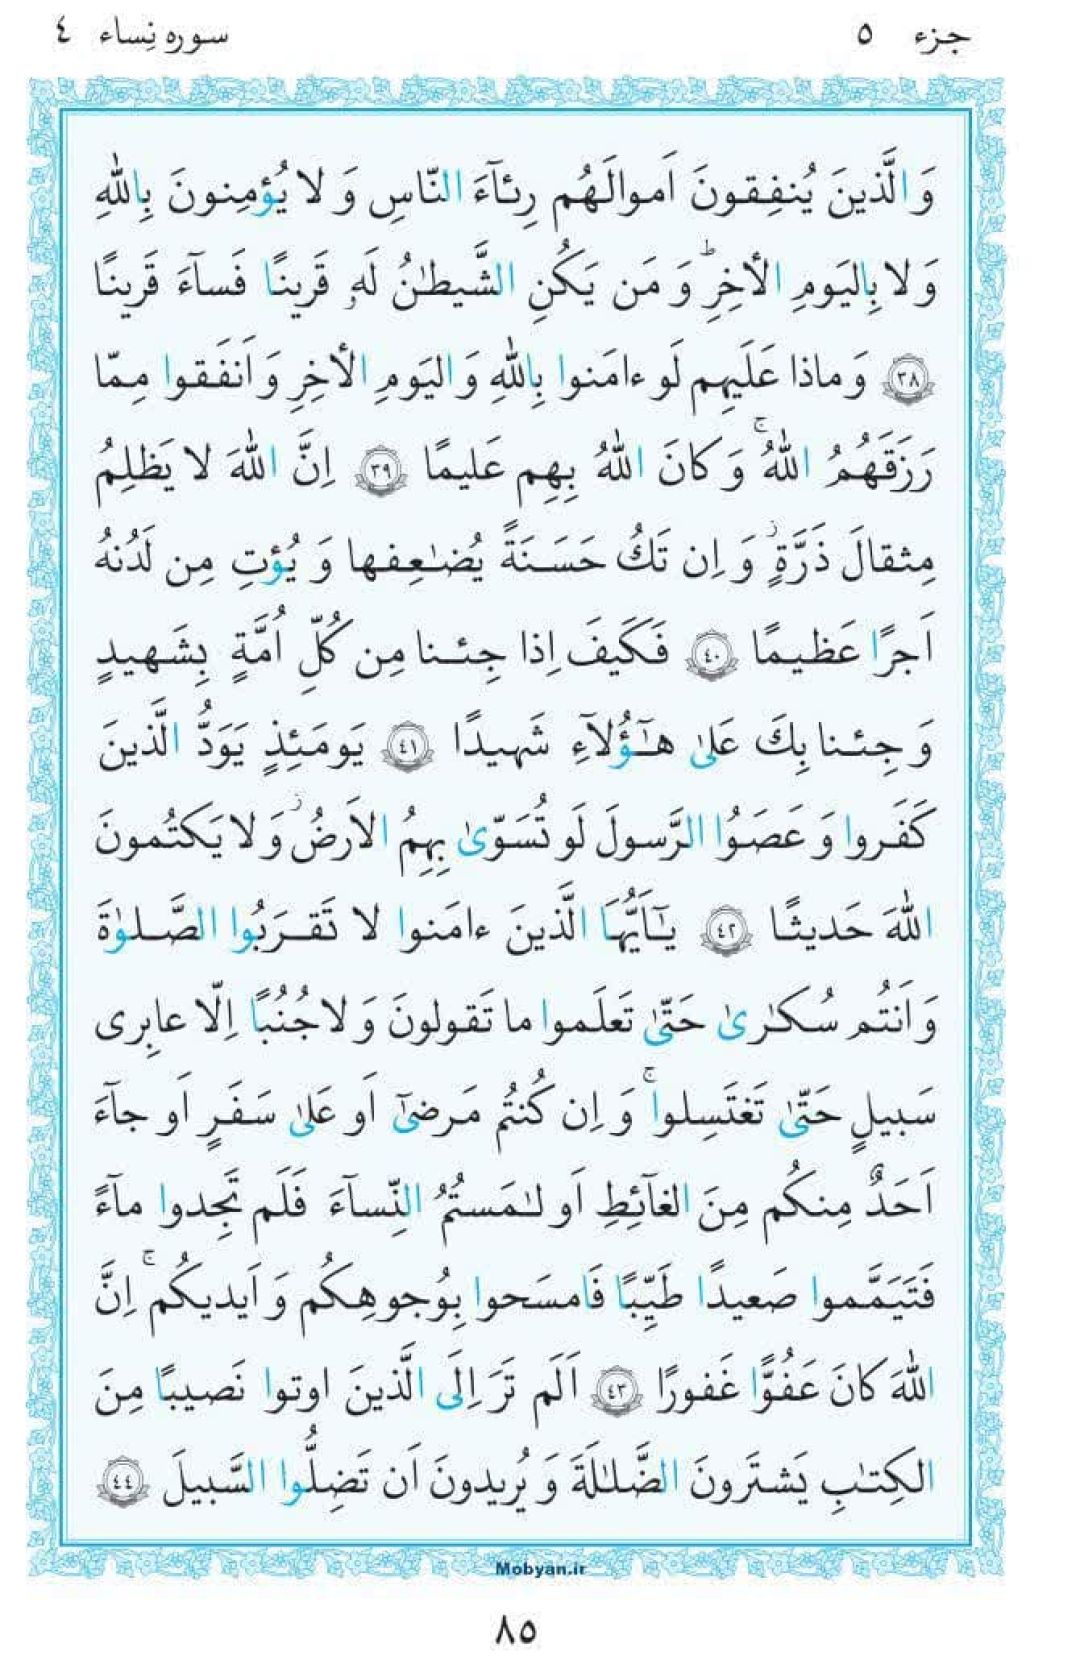 جزء ٥
سوره نِساء ٤
وَ الَّذينَ يُنفِقونَ اَموالَهُم رِئآءَ النّاسِ وَ لا يُؤمِنونَ بِاللهِ
وَ لا بِاليَومِ الأخِرِؕ وَ مَن يَكُنِ الشَّيطٰنُ لَهٖ قَرينًا فَسآءَ قَرينًا
﴿٣٨﴾ وَ ماذا عَلَيهِم لَو ءامَنوا بِاللهِ وَ اليَومِ الأخِرِ وَ اَنفَقوا مِمّا
رَزَقَهُمُ اللهُۚ وَ كانَ اللهُ بِهِم عَليمًا ﴿٣٩﴾ اِنَّ اللهَ لا يَظلِمُ
مِثقالَ ذَرَّةٍؗ وَ اِن تَكُ حَسَنَةً يُضٰعِفها وَ يُؤتِ مِن لَدُنهُ
اَجرًا عَظيمًا ﴿٤٠﴾ فَكَيفَ اِذا جِئنا مِن كُلِّ اُمَّةٍ بِشَهيدٍ
وَ جِئنا بِكَ عَلىٰ هٰٓؤُلآءِ شَهيدًا ﴿٤١﴾ يَومَئِذٍ يَوَدُّ الَّذينَ
كَفَروا وَ عَصَوُا الرَّسولَ لَو تُسَوّىٰ بِهِمُ الاَرضُؗ وَ لا يَكتُمونَ
اللهَ حَديثًا ﴿٤٢﴾ يٰٓاَيُّهَا الَّذينَ ءامَنوا لا تَقرَبُوا الصَّلوٰةَ
وَ اَنتُم سُكٰرىٰ حَتّىٰ تَعلَموا ما تَقولونَ وَ لا جُنُبًا اِلّا عابِرى
سَبيلٍ حَتّىٰ تَغتَسِلواۚ وَ اِن كُنتُم مَرضىٰٓ اَو عَلىٰ سَفَرٍ اَو جآءَ
اَحَدٌ مِنكُم مِنَ الغآئِطِ اَو لٰمَستُمُ النِّسآءَ فَلَم تَجِدوا مآءً
فَتَيَمَّموا صَعيدًا طَيِّبًا فَامسَحوا بِوُجوهِكُم وَ اَيديكُمۚ اِنَّ
اللهَ كانَ عَفُوًّا غَفورًا ﴿٤٣﴾ اَلَم تَرَ اِلَى الَّذينَ اوتوا نَصيبًا مِنَ
الكِتٰبِ يَشتَرونَ الضَّلٰلَةَ وَ يُريدونَ اَن تَضِلُّوا السَّبيلَ ﴿٤٤﴾
Mobyan.ir
٨٥